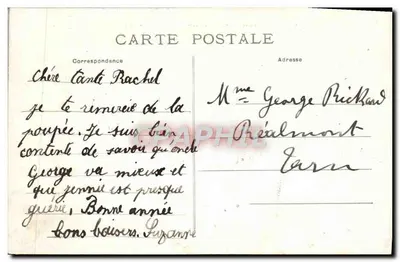 CARTE POSTALE
Correspondance
Adresse
Chère tante Rachel
je te remercie de la
poupée. Je suis bien
contente de savoir qu'oncle
George va mieux et
que jennie est presque
guérie, Bonne année
bons baisers. Suzanne
Mme George Rickard
Réalmont
Tarn